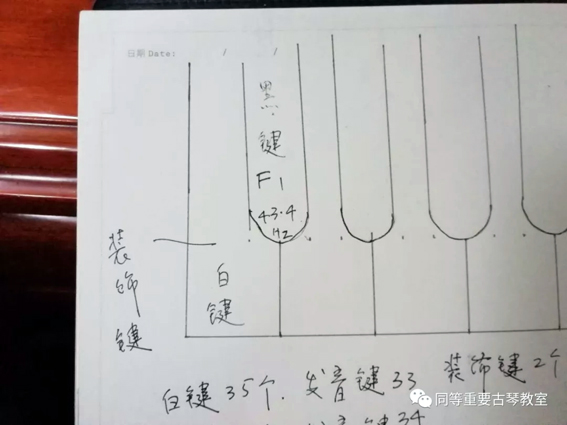 日期 Date:
黑键
F1
43.4
HZ
装饰键
白键
白键35个.发音键33 装饰键2个
音键34
同等重要古琴教室